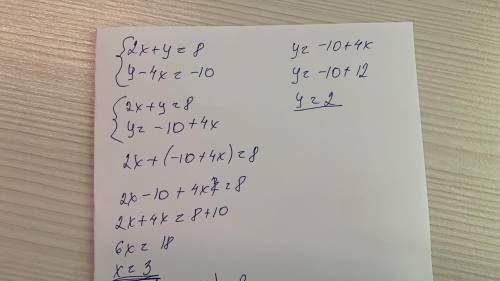 {2x+y=8
y-4x=-10
{2x+y=8
y=-10+4x
2x+(-10+4x)=8
2x-10+4x=8
2x+4x=8+10
6x=18
x=3
y=-10+4x
y=-10+12
y=2